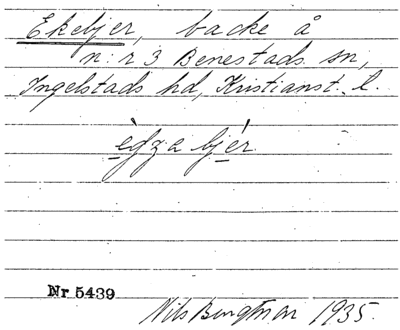 Ekebjer, backe å
n:r 3 Benestads sn,
Ingelstads hd, Kristianst. l.
ègza bjér
Nr 5439
Nils Bengtson 1935.